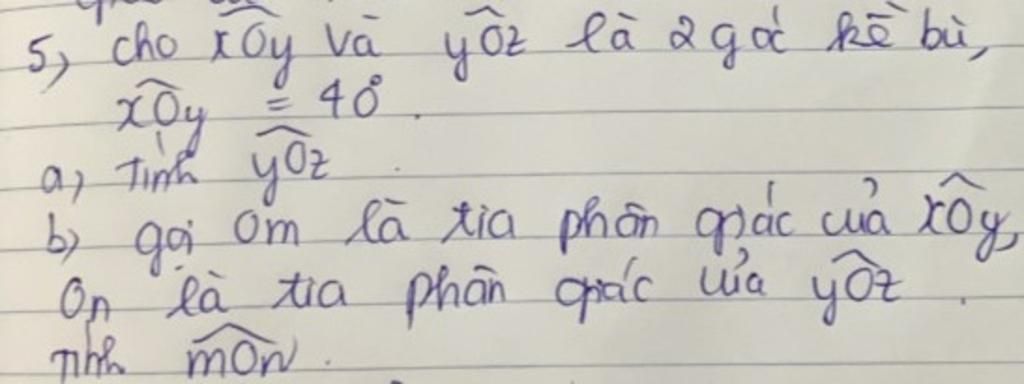 5, cho xOy và yOz là 2 góc kề bù,
xOy = 40°.
a, Tính yOz.
b, gọi Om là tia phân giác của xOy,
On là tia phân giác của yOz.
Tính mOn.